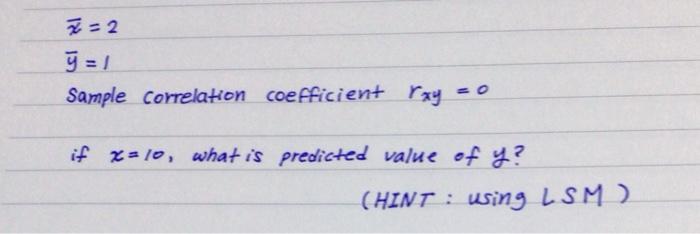 x̄ = 2
ȳ = 1
Sample correlation coefficient rxy = 0
if x = 10, what is predicted value of y?
(HINT : using LSM)